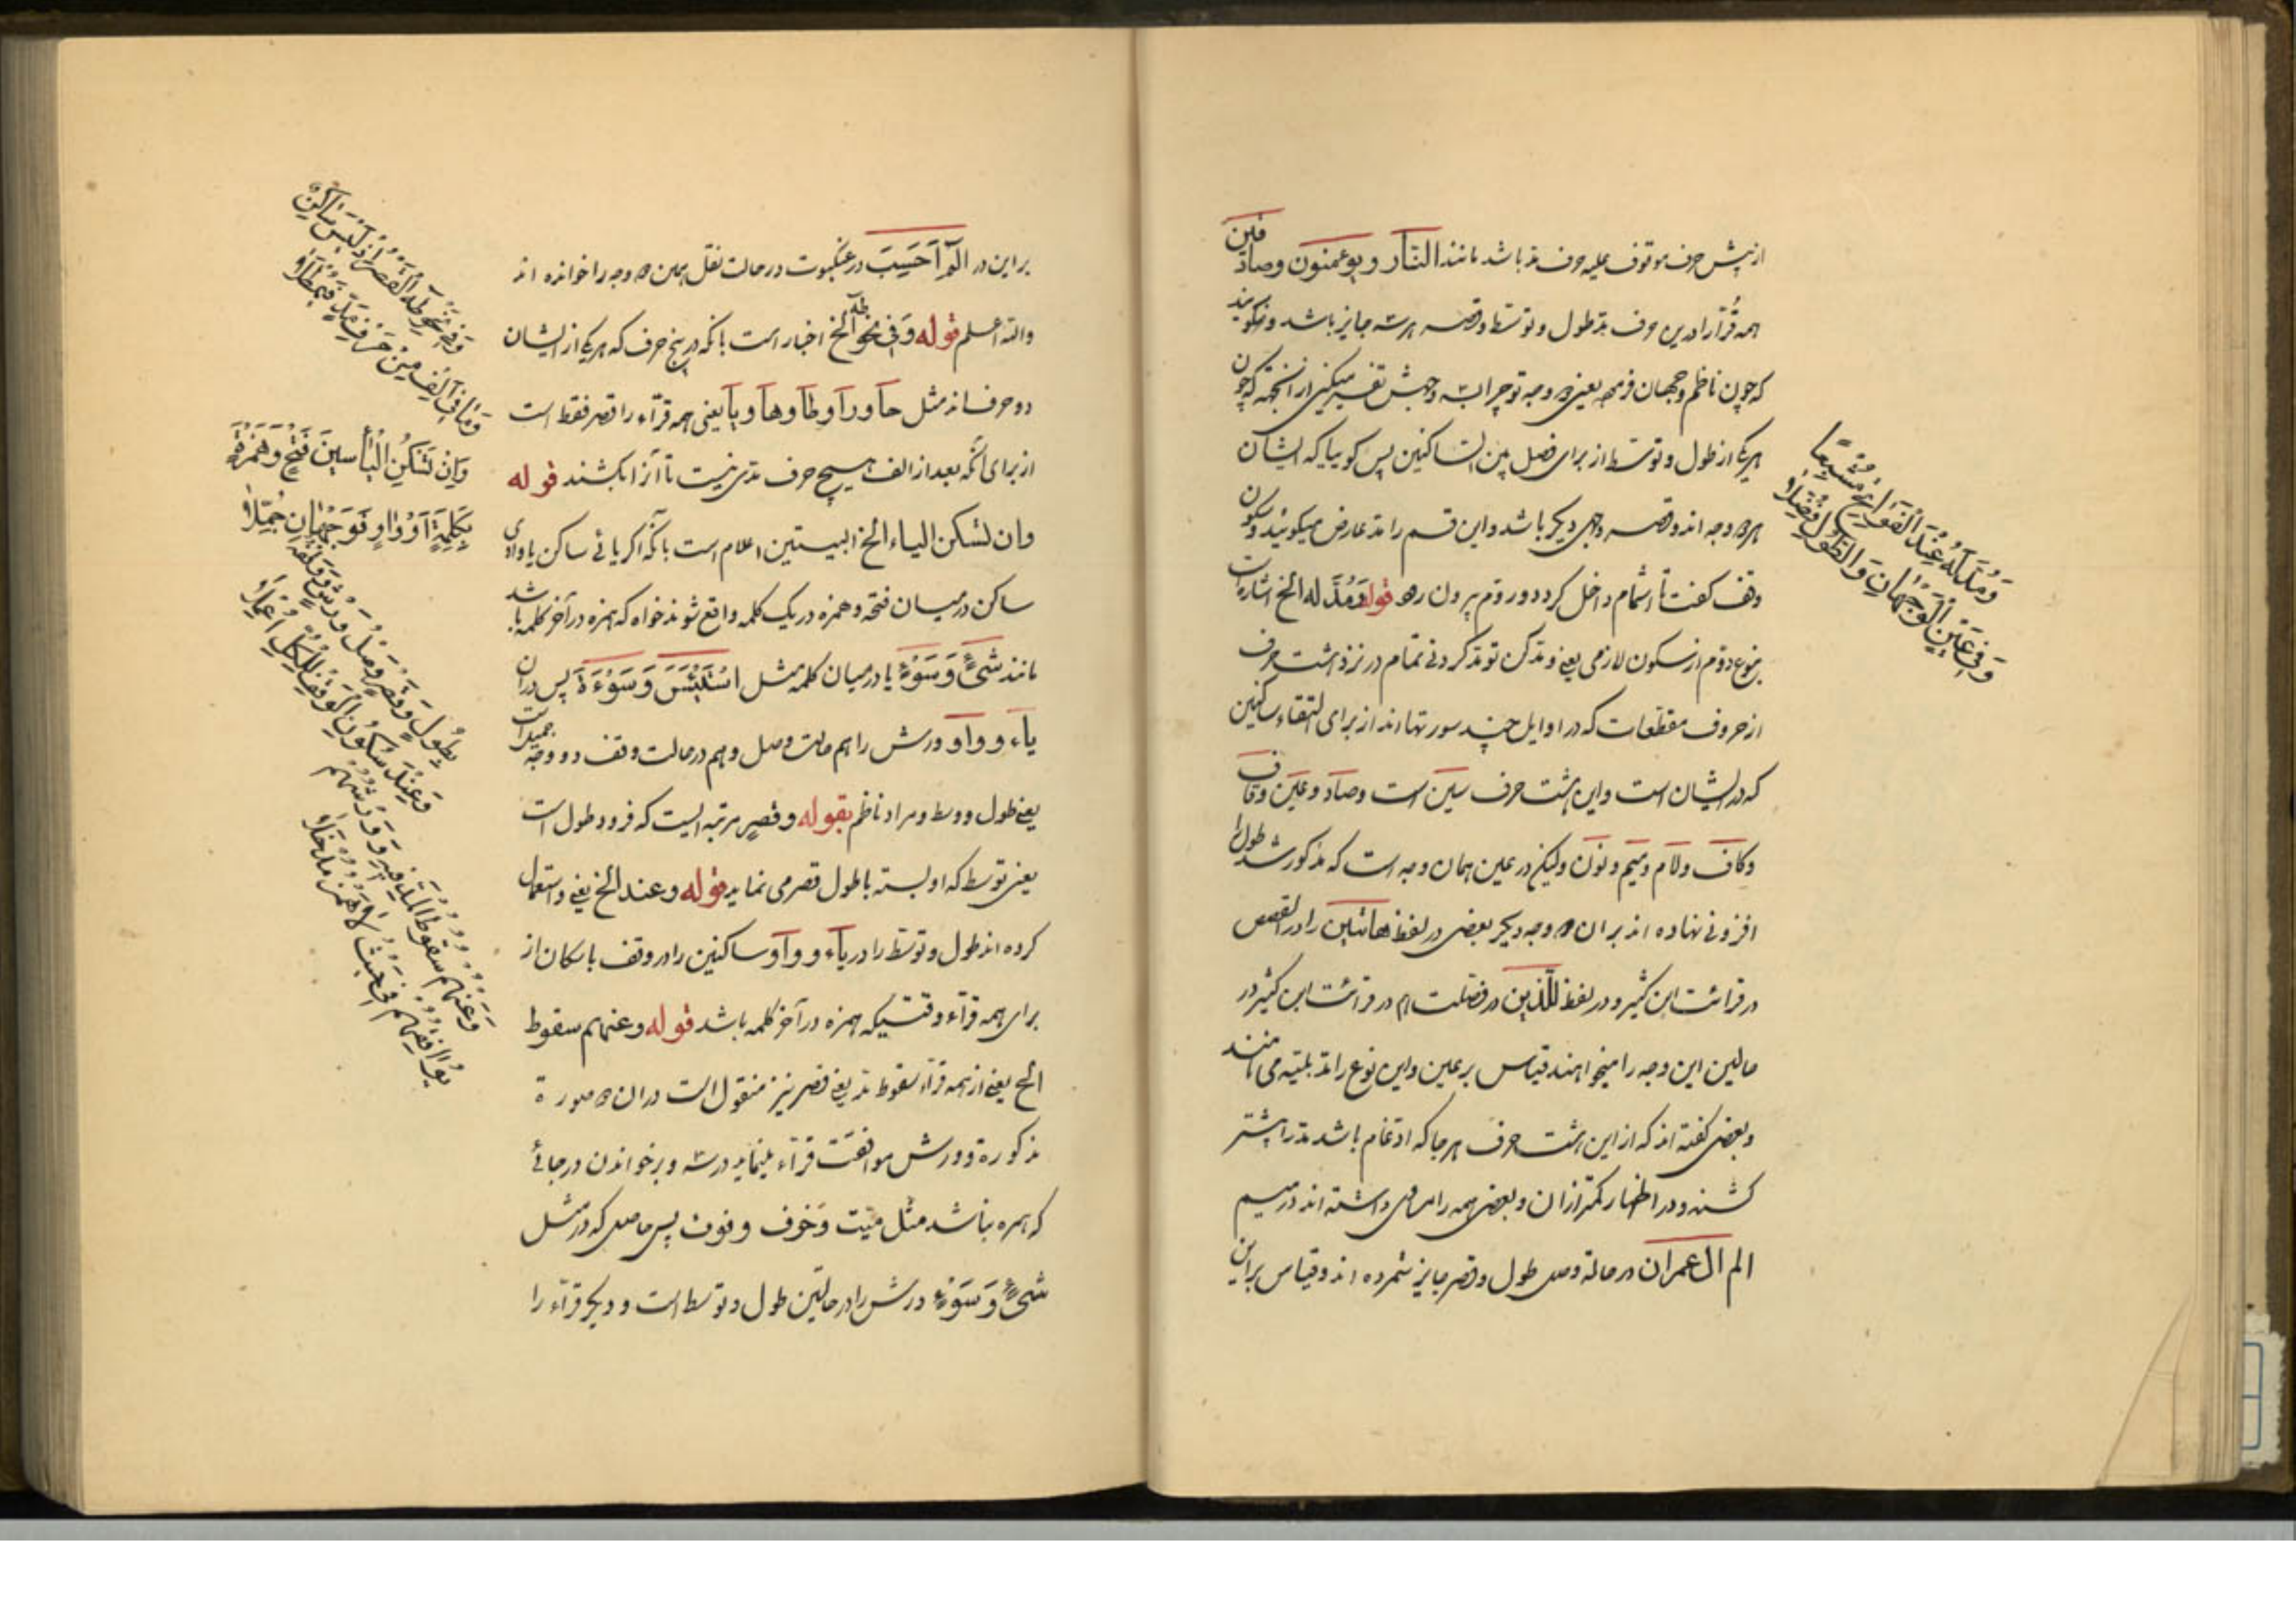 از پیش حرف موقوف علیه حرف مد باشد مانند النار و یوعمنون وصادقین
همه قرآرا درین حرف مد طول و توسط و قصر هر سه جایز باشد و نکویند
که چون ناظم وجهان فرمود یعنی دو وجه تو چرا سه وجهش تفسیر میکنی از انجهة که چون
هریک از طول و توسط از برای فصل بین الساکنین پس کوییا که ایشان
هر دو وجه اند و قصر وجهی دیکر باشد و این قسم را مد عارض میکویند و سکون
وقف کفت تا اشمام داخل کردد و روم بیرون رود قوله وَمُدَّ له الخ اشارتست
بنوع دوم از سکون لازمی یعنی و مد کن تو مد کردنی تمام در نزد هشت حرف
از حروف مقطعات که در اوایل چند سورتها اند از برای التقاء ساکنین
که در ایشان است و این هشت حرف سین است و صاد و عین و قاف
و کاف و لام و میم و نون ولیکن در عین همان وجه است که مذکور شد طول را
افزونی نهاده اند بر ان دو وجه دیکر بعضی در لفظ هاتین را در القصص
در قرائت ابن کثیر و در لفظ للّذین در فصلت هم در قرائت ابن کثیر در
حالین این وجه را میخواهند قیاس بر عین و این نوع را مد بلیته می نامند
و بعضی کفته اند که از این هشت حرف هر جا که ادغام باشد مد را بیشتر
کشند و در اظهار کمتر از ان و بعضی همه را مساوی داشته اند در میم
الم ال عمران در حالة وصل طول و قصر جایز شمرده اند و قیاس براین
وَمُدَّ لَهُ عِنْدَ الْفَوَاتِحِ مُشْبِعًا
وَفِی عَیْنٍ الْوَجْهَانِ وَالطُّولُ فُضِّلَا
براین در الٓمٓ اَحَسِبَ در عنکبوت در حالت نقل همین دو وجه را خوانده اند
والله اعلم قوله وَفِی نَحْوِ طه الخ اخبار است بانکه در پنج حرف که هریک از ایشان
دو حرف اند مثل حا و را و طا و ها و یا یعنی همه قرآء را قصر فقط است
از برای انکه بعد از الف هیچ حرف مدی نیست تا آنرا بکشند قوله
وان لتسکن الیاء الخ البیستین اعلام است بآنکه اکر یائے ساکن یا واوی
ساکن در میان فتحه و همزه در یک کلمه واقع شوند خواه که همزه در آخر کلمه باشد
مانند شیءٌ وَسَوْءٌ یا در میان کلمه مثل اسْتَیْئَسَ وَسَوْءَةَ پس دران
یاء و واو ورش را هم حالت وصل و هم در حالت وقف دو وجه جمیل است
یعنی طول و وسط و مراد ناظم بقوله وقصرٍ مرتبه ایست که فرود طول است
یعنی توسط که او بسته با طول قصر می نماید قوله وعند الخ یعنی و استعمال
کرده اند طول و توسط را در یاء و واو ساکنین را در وقف باسکان از
برای همه قرآء وقتیکه همزه در آخر کلمه باشد قوله وعنهم سقوط
الخ یعنی از همه قرآء سقوط مد یعنی قصر نیز منقول است دران دو صورة
مذکورة و ورش موافقت قرآء مینماید در سه وبر خواندن در جائے
که همزه نباشد مثل میّت وَخوف و نون پس حاصل که در مثل
شیءٌ وَسَوْءٌ ورش را در حالتین طول و توسط است و دیکر قرآء را
وَفِی نَحْوِ طٰهَ الْقَصْرُ اِذْ لَیْسَ سَاکِنٌ
وَمَا فِی اَلِفٍ مِنْ حَرْفِ مَدٍّ فَیُمْطَلَا
وَاِنْ تَسْکُنِ الْیَا بَیْنَ فَتْحٍ وَهَمْزَةٍ
بِکَلِمَةٍ اَوْ وَاوٍ فَوَجْهَانِ جُمِّلَا
بِطُولٍ وَقَصْرٍ وَصْلُ وَرْشٍ وَوَقْفُهُ
وَعِنْدَ سُکُونِ الْوَقْفِ لِلْکُلِّ اُعْمِلَا
وَعَنْهُمْ سُقُوطُ الْمَدِّ فِیهِ وَوَرْشُهُمْ
یُوَافِقُهُمْ فِی حَیْثُ لَا هَمْزَ مُدْخَلَا